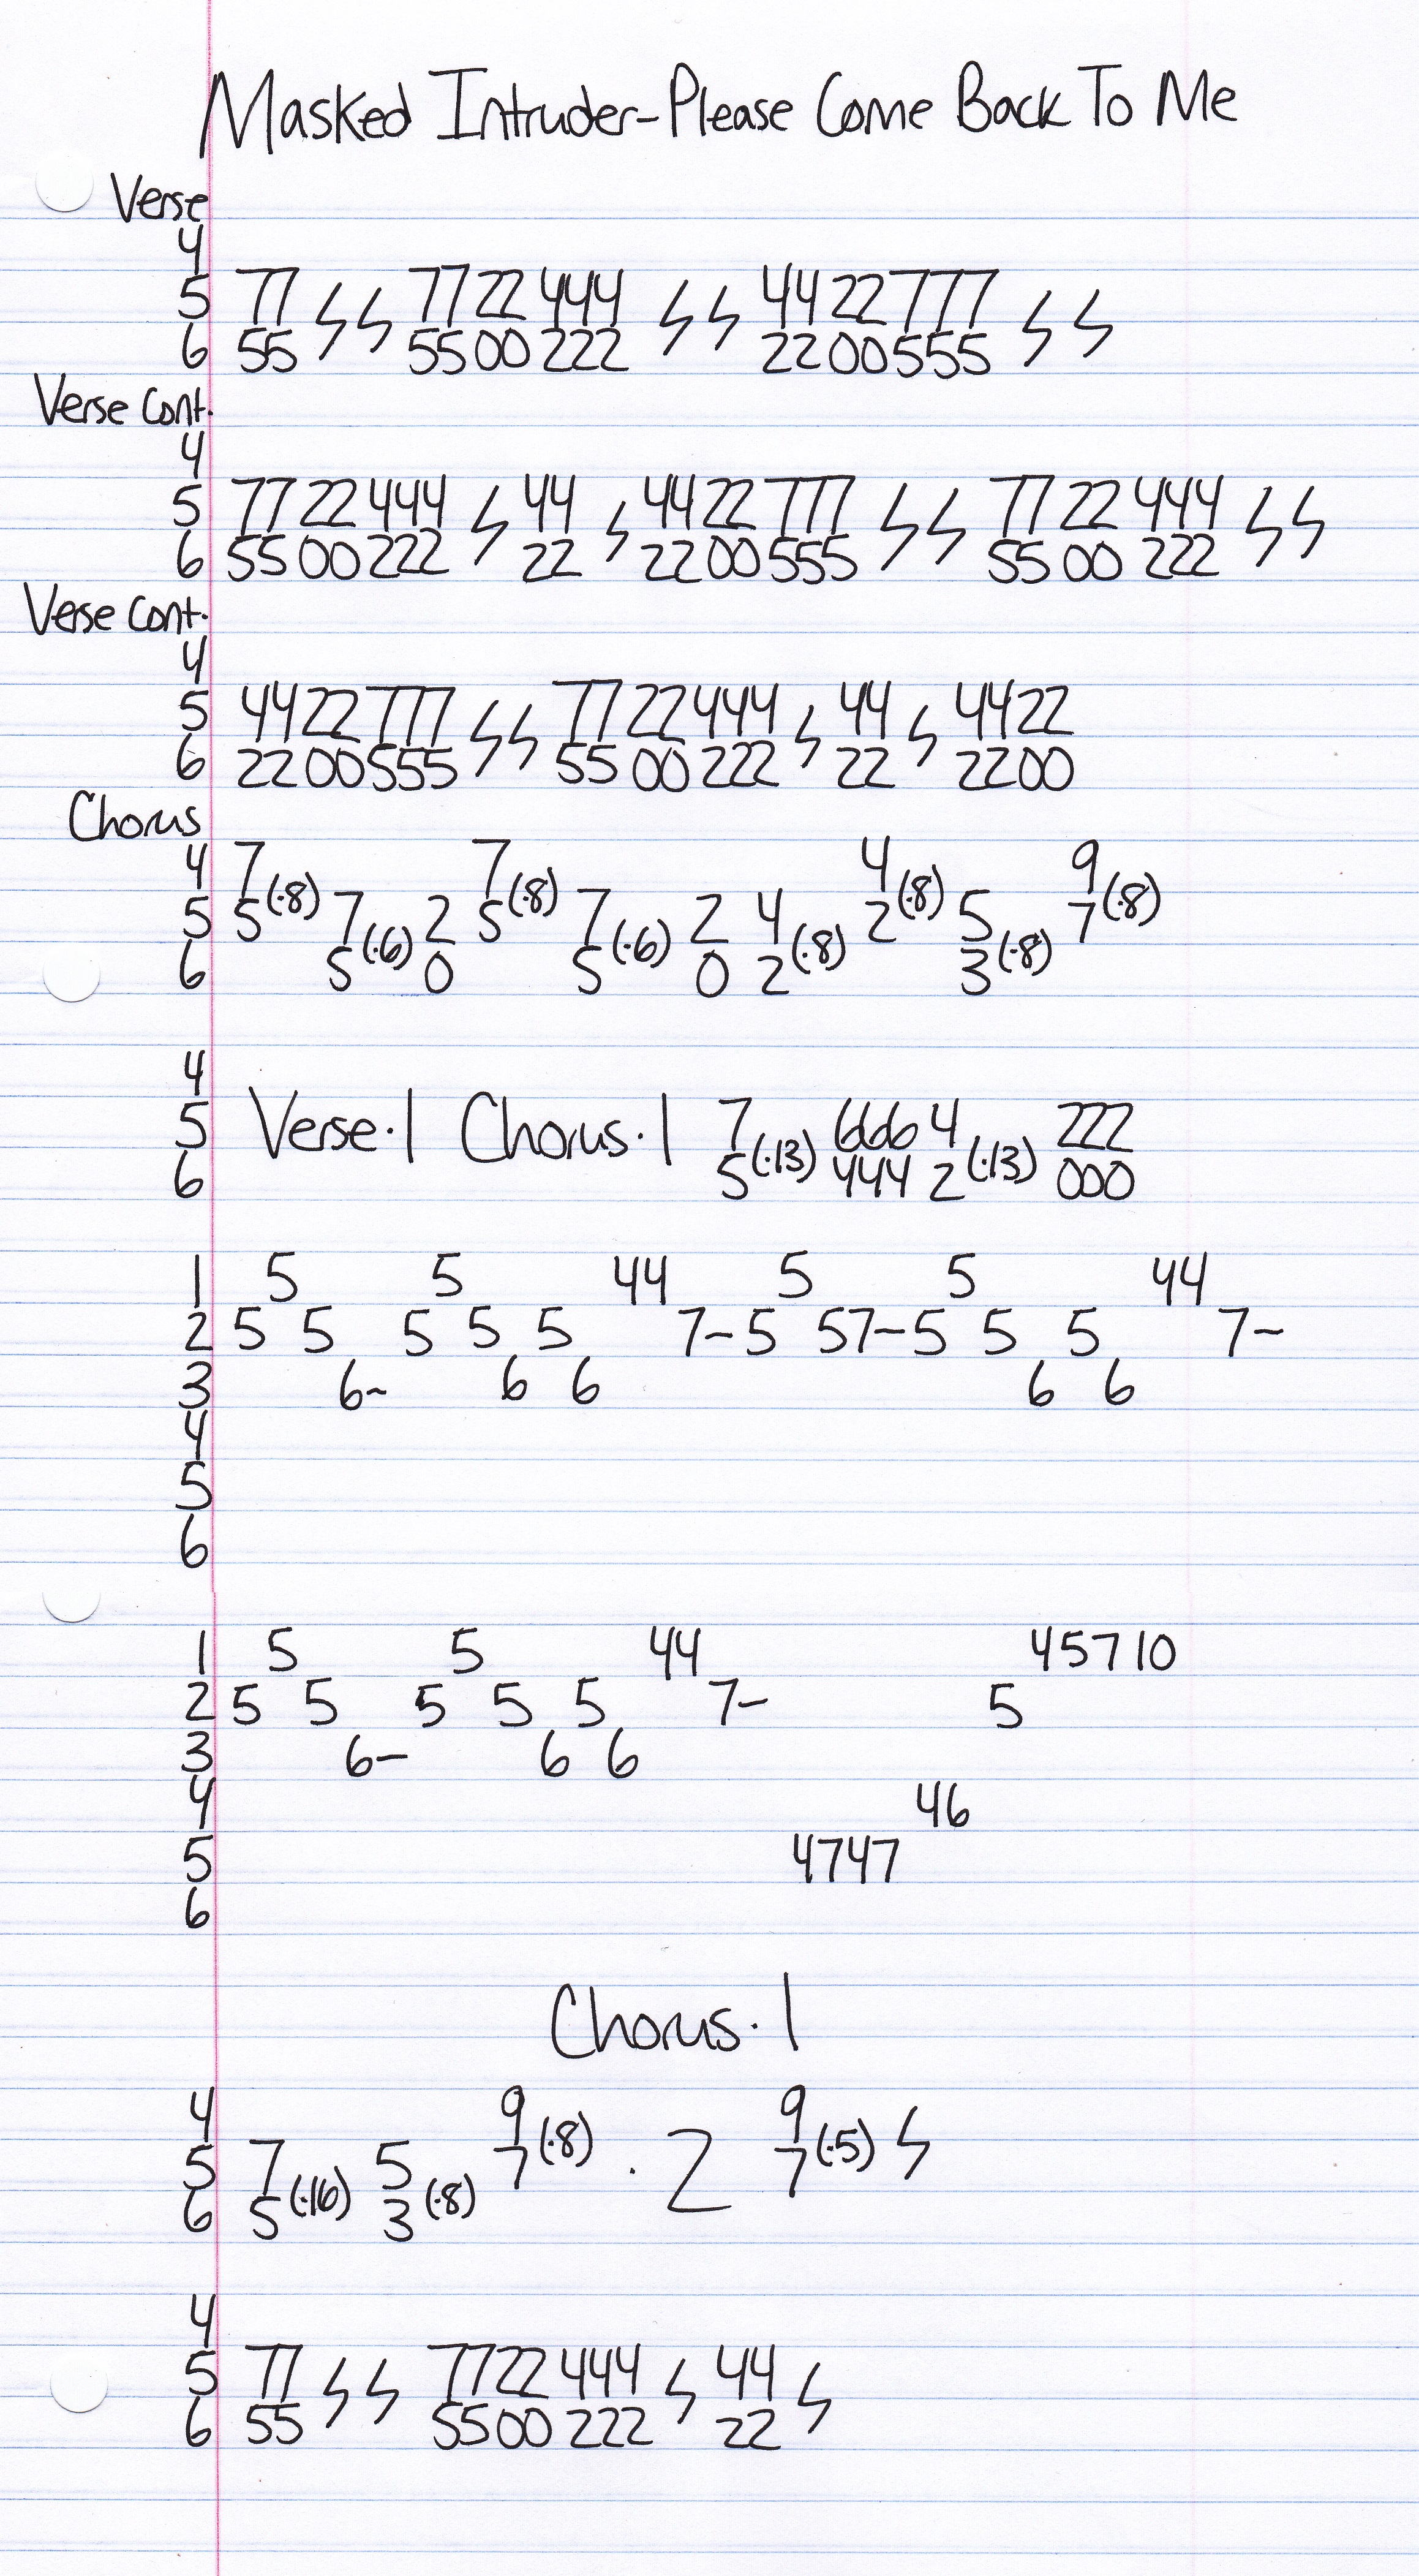 Masked Intruder-Please Come Back To Me
Verse
4
5 77 ϟ ϟ 77 22 444 ϟ ϟ 44 22 777 ϟ ϟ
6 55 55 00 222 22 00 555
Verse Cont.
4
5 77 22 444 ϟ 44 ϟ 44 22 777 ϟ ϟ 77 22 444 ϟ ϟ
6 55 00 222 22 22 00 555 55 00 222
Verse Cont.
4
5 44 22 777 ϟ ϟ 77 22 444 ϟ 44 ϟ 44 22
6 22 00 555 55 00 222 22 22 00
Chorus
4 7 7 4 9
5 5(·8) 7 2 5(·8) 7 2 4 2(·8) 5 7(·8)
6 5(·6) 0 5(·6) 0 2(·8) 3(·8)
4
5 Verse·1 Chorus·1 7 666 4 222
6 5(·13) 444 2(·13) 000
1 5 5 44 5 5 44
2 5 5 5 5 5 7- 5 57- 5 5 5 7-
3 6- 6 6 6 6
4
5
6
1 5 5 44 4 5 7 10
2 5 5 5 5 5 7- 5
3 6- 6 6
4 46
5 4747
6
Chorus·1
4 9 9
5 7 5 7(·8) · 2 7(·5) ϟ
6 5(·16) 3(·8)
4
5 77 ϟ ϟ 77 22 444 ϟ 44 ϟ
6 55 55 00 222 22